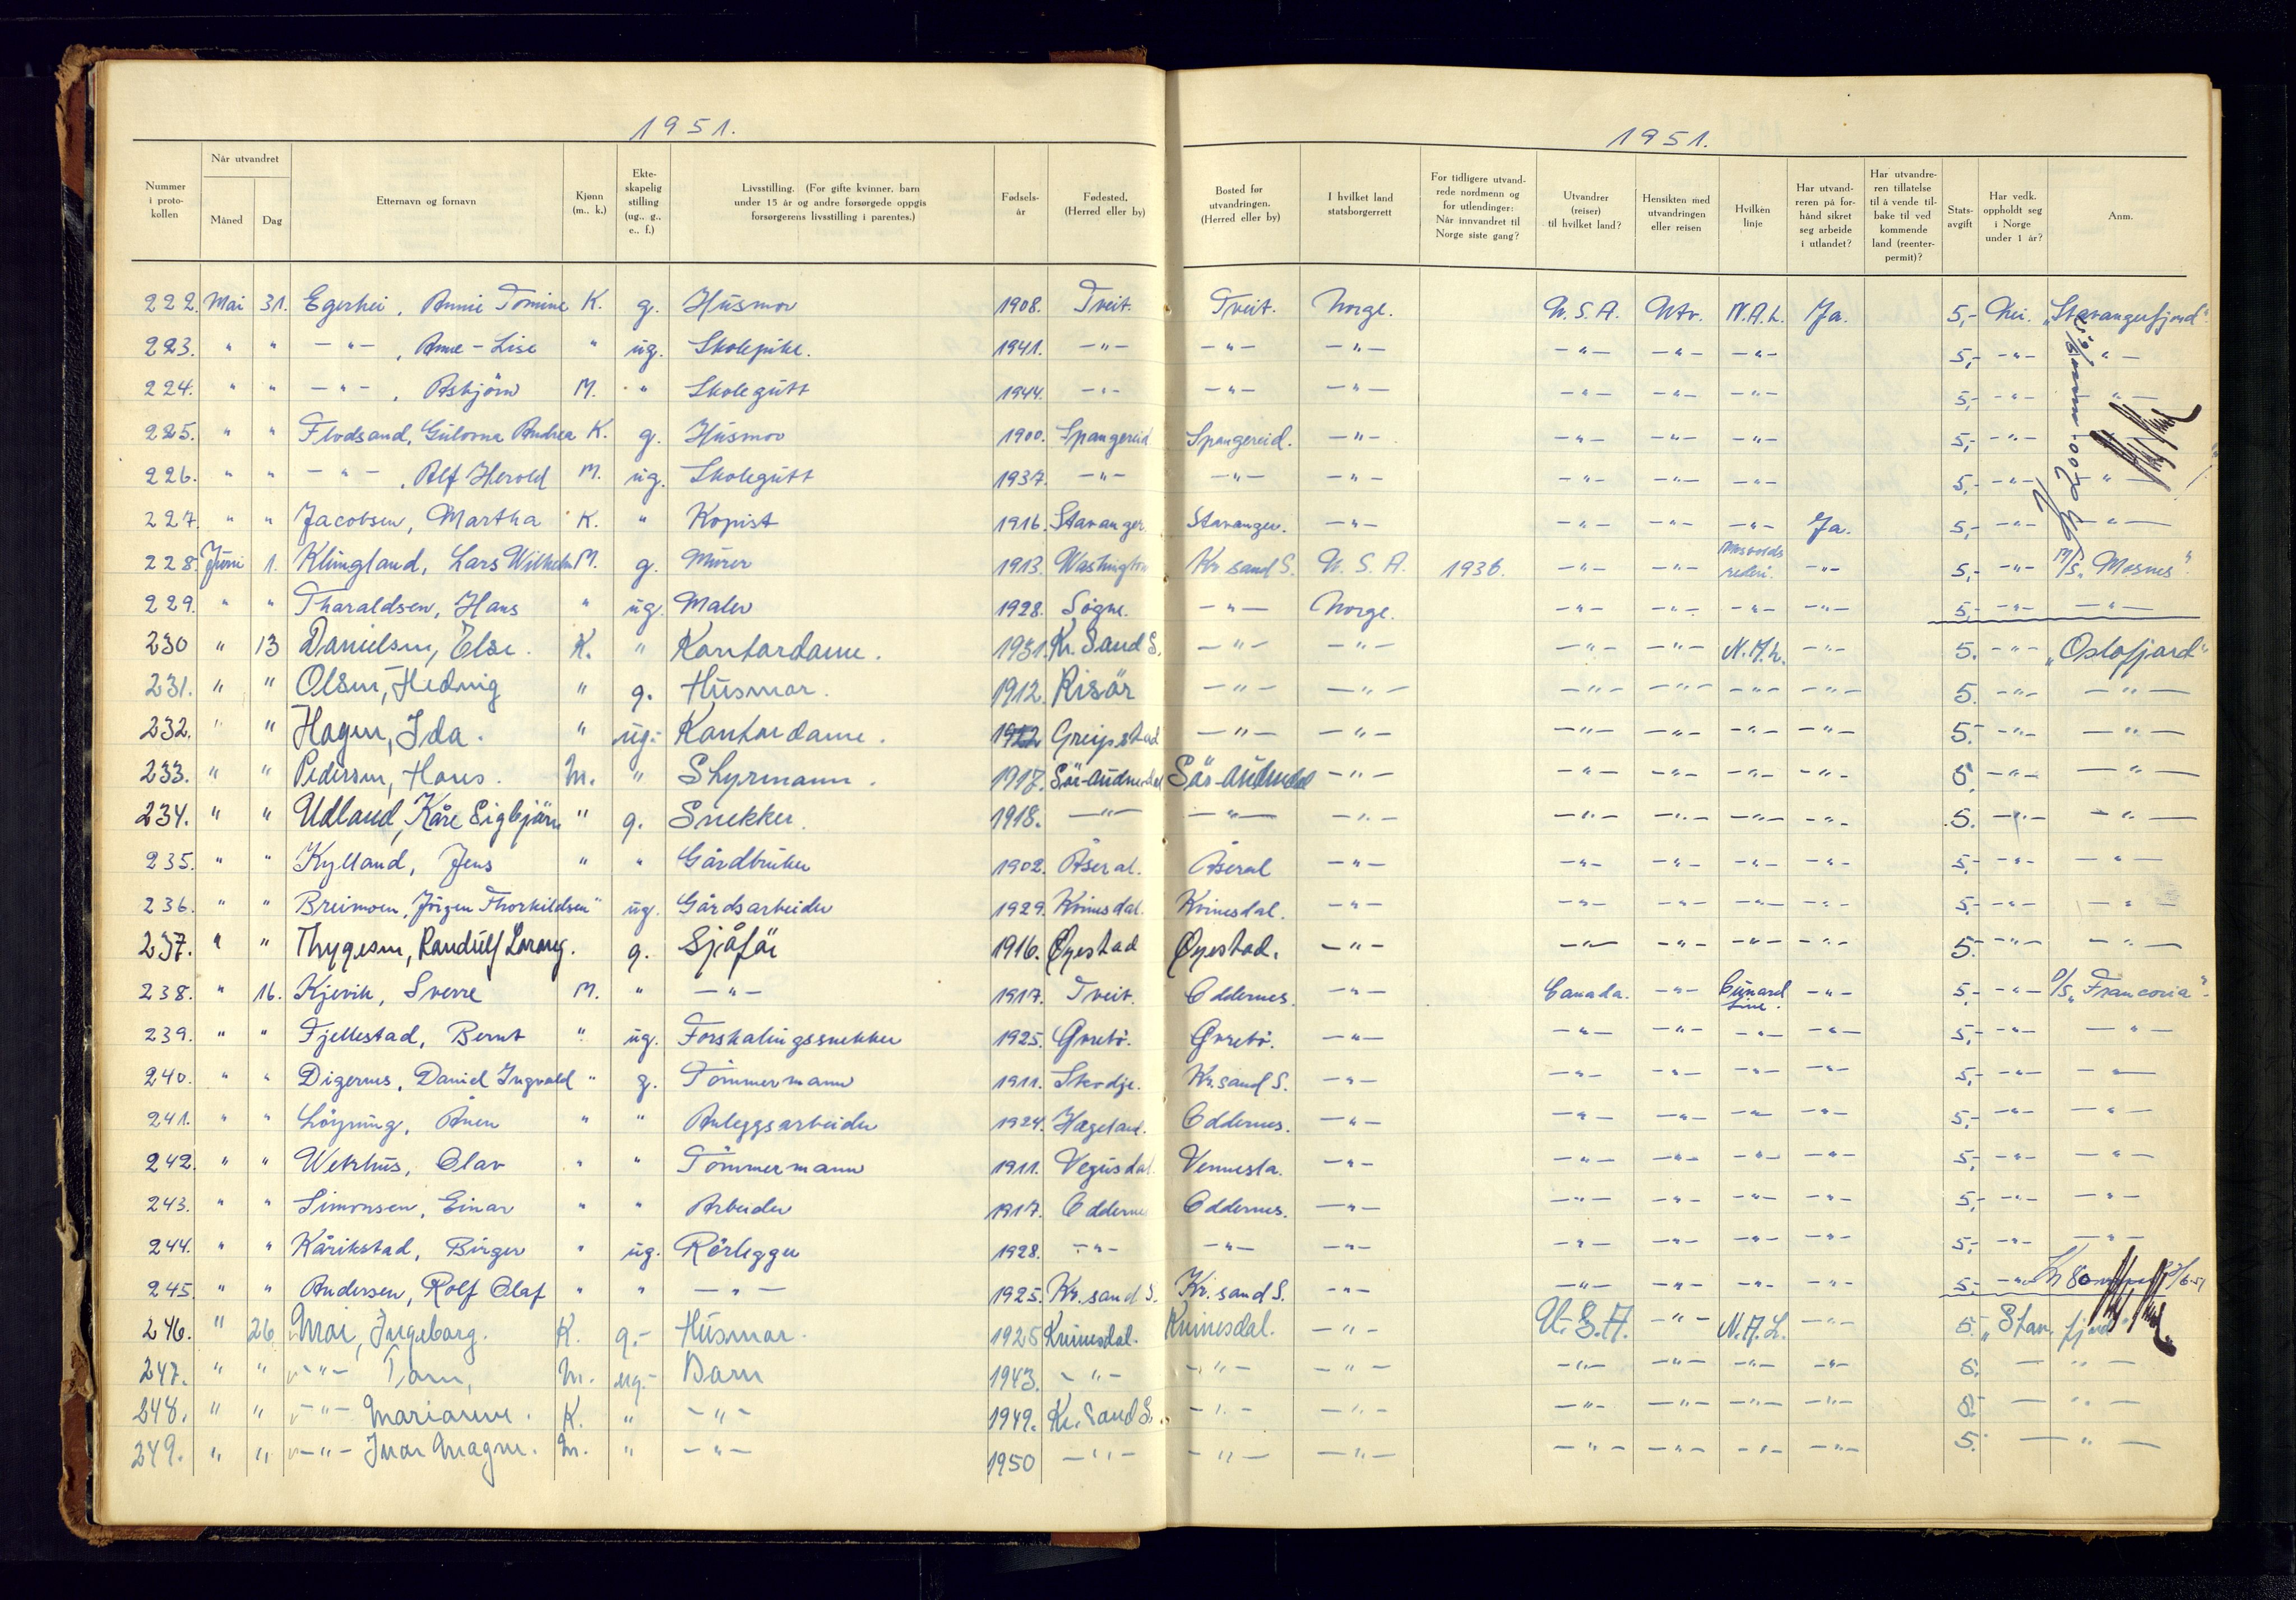 1951.
1951.
Nummer i protokollen | Når utvandret Måned Dag | Etternavn og fornavn | Kjønn (m., k.) | Ekteskapelig stilling (ug., g., e., f.) | Livsstilling. (For gifte kvinner, barn under 15 år og andre forsørgede oppgis forsørgerens livsstilling i parentes.) | Fødselsår | Fødested. (Herred eller by) | Bosted før utvandringen. (Herred eller by) | I hvilket land statsborgerrett | For tidligere utvandrede nordmenn og for utlendinger: Når innvandret til Norge siste gang? | Utvandrer (reiser) til hvilket land? | Hensikten med utvandringen eller reisen | Hvilken linje | Har utvandreren på forhånd sikret seg arbeide i utlandet? | Har utvandreren tillatelse til å vende tilbake til vedkommende land (reenterpermit)? | Statsavgift | Har vedk. oppholdt seg i Norge under 1 år? | Anm.
222. Mai 31. Egerhei, Annie Tomine K. g. Husmor 1908. Tveit. Tveit. Norge. U.S.A. Utv. N.A.L. Ja. 5,- Nei. „Stavangerfjord"
223. " " -"- , Anne-Lise " ug. Skolepike. 1941. -"- -"- -"- -"- -"- -"- 5,- -"- -"-
224. " " -"- , Asbjörn M. " Skolegutt 1944. -"- -"- -"- -"- -"- -"- 5,- -"- -"-
225. " " Flodsand, Gulovna Andrea K. g. Husmor 1900. Spangereid Spangereid. -"- -"- -"- -"- 5,- -"-
226. " " -"- , Alf Herold M. ug. Skolegutt 1937. -"- -"- -"- -"- -"- -"- 5,- -"- -"-
227. " " Jacobsen, Martha K. " Kopist 1916. Stavanger. Stavanger. -"- -"- -"- -"- Ja. 5,- -"- -"-
228. Juni 1. Klungland, Lars Wilhelm M. g. Murer 1913. Washington Kr sand S. U.S.A. 1936. -"- -"- Mosvolds rederi. -"- 5,- -"- M/S „Mosnes".
229. " " Tharaldsen, Hans " ug. Maler 1928. Sögne. -"- Norge. -"- -"- -"- -"- 5,- -"- -"-
230 " 13 Danielsen, Else. K. " Kontordame. 1931. Kr. Sand S. -"- -"- -"- -"- N.A.L. -"- 5. -"- „Oslofjord"
231. " " Olsen, Hedvig " g. Husmor. 1912 Risör -"- -"- -"- -"- -"- -"- 5. -"- -"-
232. " " Hagen, Ida. " ug.- Kontordame. Greipstad -"- -"- -"- -"- -"- -"- 5.- -"- -"-
233. " " Pedersen, Hans. M. " Styrmann. 1917. Sör-Audnedal Sör-Audnedal -"- -"- -"- -"- -"- 5, -"- -"-
234. " " Udland, Kåre Sigbjörn " g. Snekker. 1918. -"- -"- -"- -"- -"- -"- -"- 5. -"- -"-
235. " " Kylland, Jens " " Gårdbruker 1902. Åseral. Åseral -"- -"- -"- -"- -"- 5,- -"- -"-
236. " " Breimoen, Jörgen Thorkildsen " ug. Gårdsarbeider 1929. Kvinesdal. Kvinesdal. -"- -"- -"- -"- -"- 5,- -"- -"-
237. " " Thygesen, Randulf Lorang. g. Sjåfør 1916. Øyestad Øyestad. -"- -"- -"- -"- -"- 5.- -"- -"-
238. " 16. Kjevik, Sverre M. " -"- 1917. Tveit. Oddernes. -"- Canada. -"- Cunard Line. -"- 5,- -"- D/S „Franconia".
239. " " Fjellestad, Bernt " ug. Forskalingssnekker 1925. Øvrebö. Øvrebö. -"- -"- -"- -"- -"- 5,- -"- -"-
240. " " Digernes, Daniel Ingvald " g. Tömmermann 1911. Skodje. Kr.sand S. -"- -"- -"- -"- -"- 5,- -"- -"-
241. " " Löyning, Ånen " " Anleggsarbeider 1924. Hægeland. Oddernes. -"- -"- -"- -"- -"- 5,- -"- -"-
242. " " Wetrhus, Olav " " Tömmermann 1911. Vegusdal. Vennesla. -"- -"- -"- -"- -"- 5,- -"- -"-
243. " " Simonsen, Einar " " Arbeider 1917. Oddernes Oddernes. -"- -"- -"- -"- -"- 5,- -"- -"-
244. " " Kårikstad, Birger " ug. Rörlegger 1928. -"- -"- -"- -"- -"- -"- -"- 5,- -"- -"-
245. " " Andersen, Rolf Olaf " " -"- 1925. Kr. sand S. Kr. sand S. -"- -"- -"- -"- -"- 5,- -"-
246. " 26 Moi, Ingeborg. K. g.- Husmor. 1925 Kvinesdal. Kvinesdal. -"- U.S.A. -"- N.A.L. -"- 5.- „Stav. fjord"
247. " " -"- Tom, M. ug.- Barn 1943. -"- -"- -"- -"- -"- -"- -"- 5. -"-
248. " " -"- Marianne. K. " -"- 1949. Kr. Sand S. -"- -"- -"- -"- -"- -"- 5. -"-
249. " " -"- Inar Magne. M. " -"- 1950 -"- -"- -"- -"- -"- -"- -"- 5. -"-